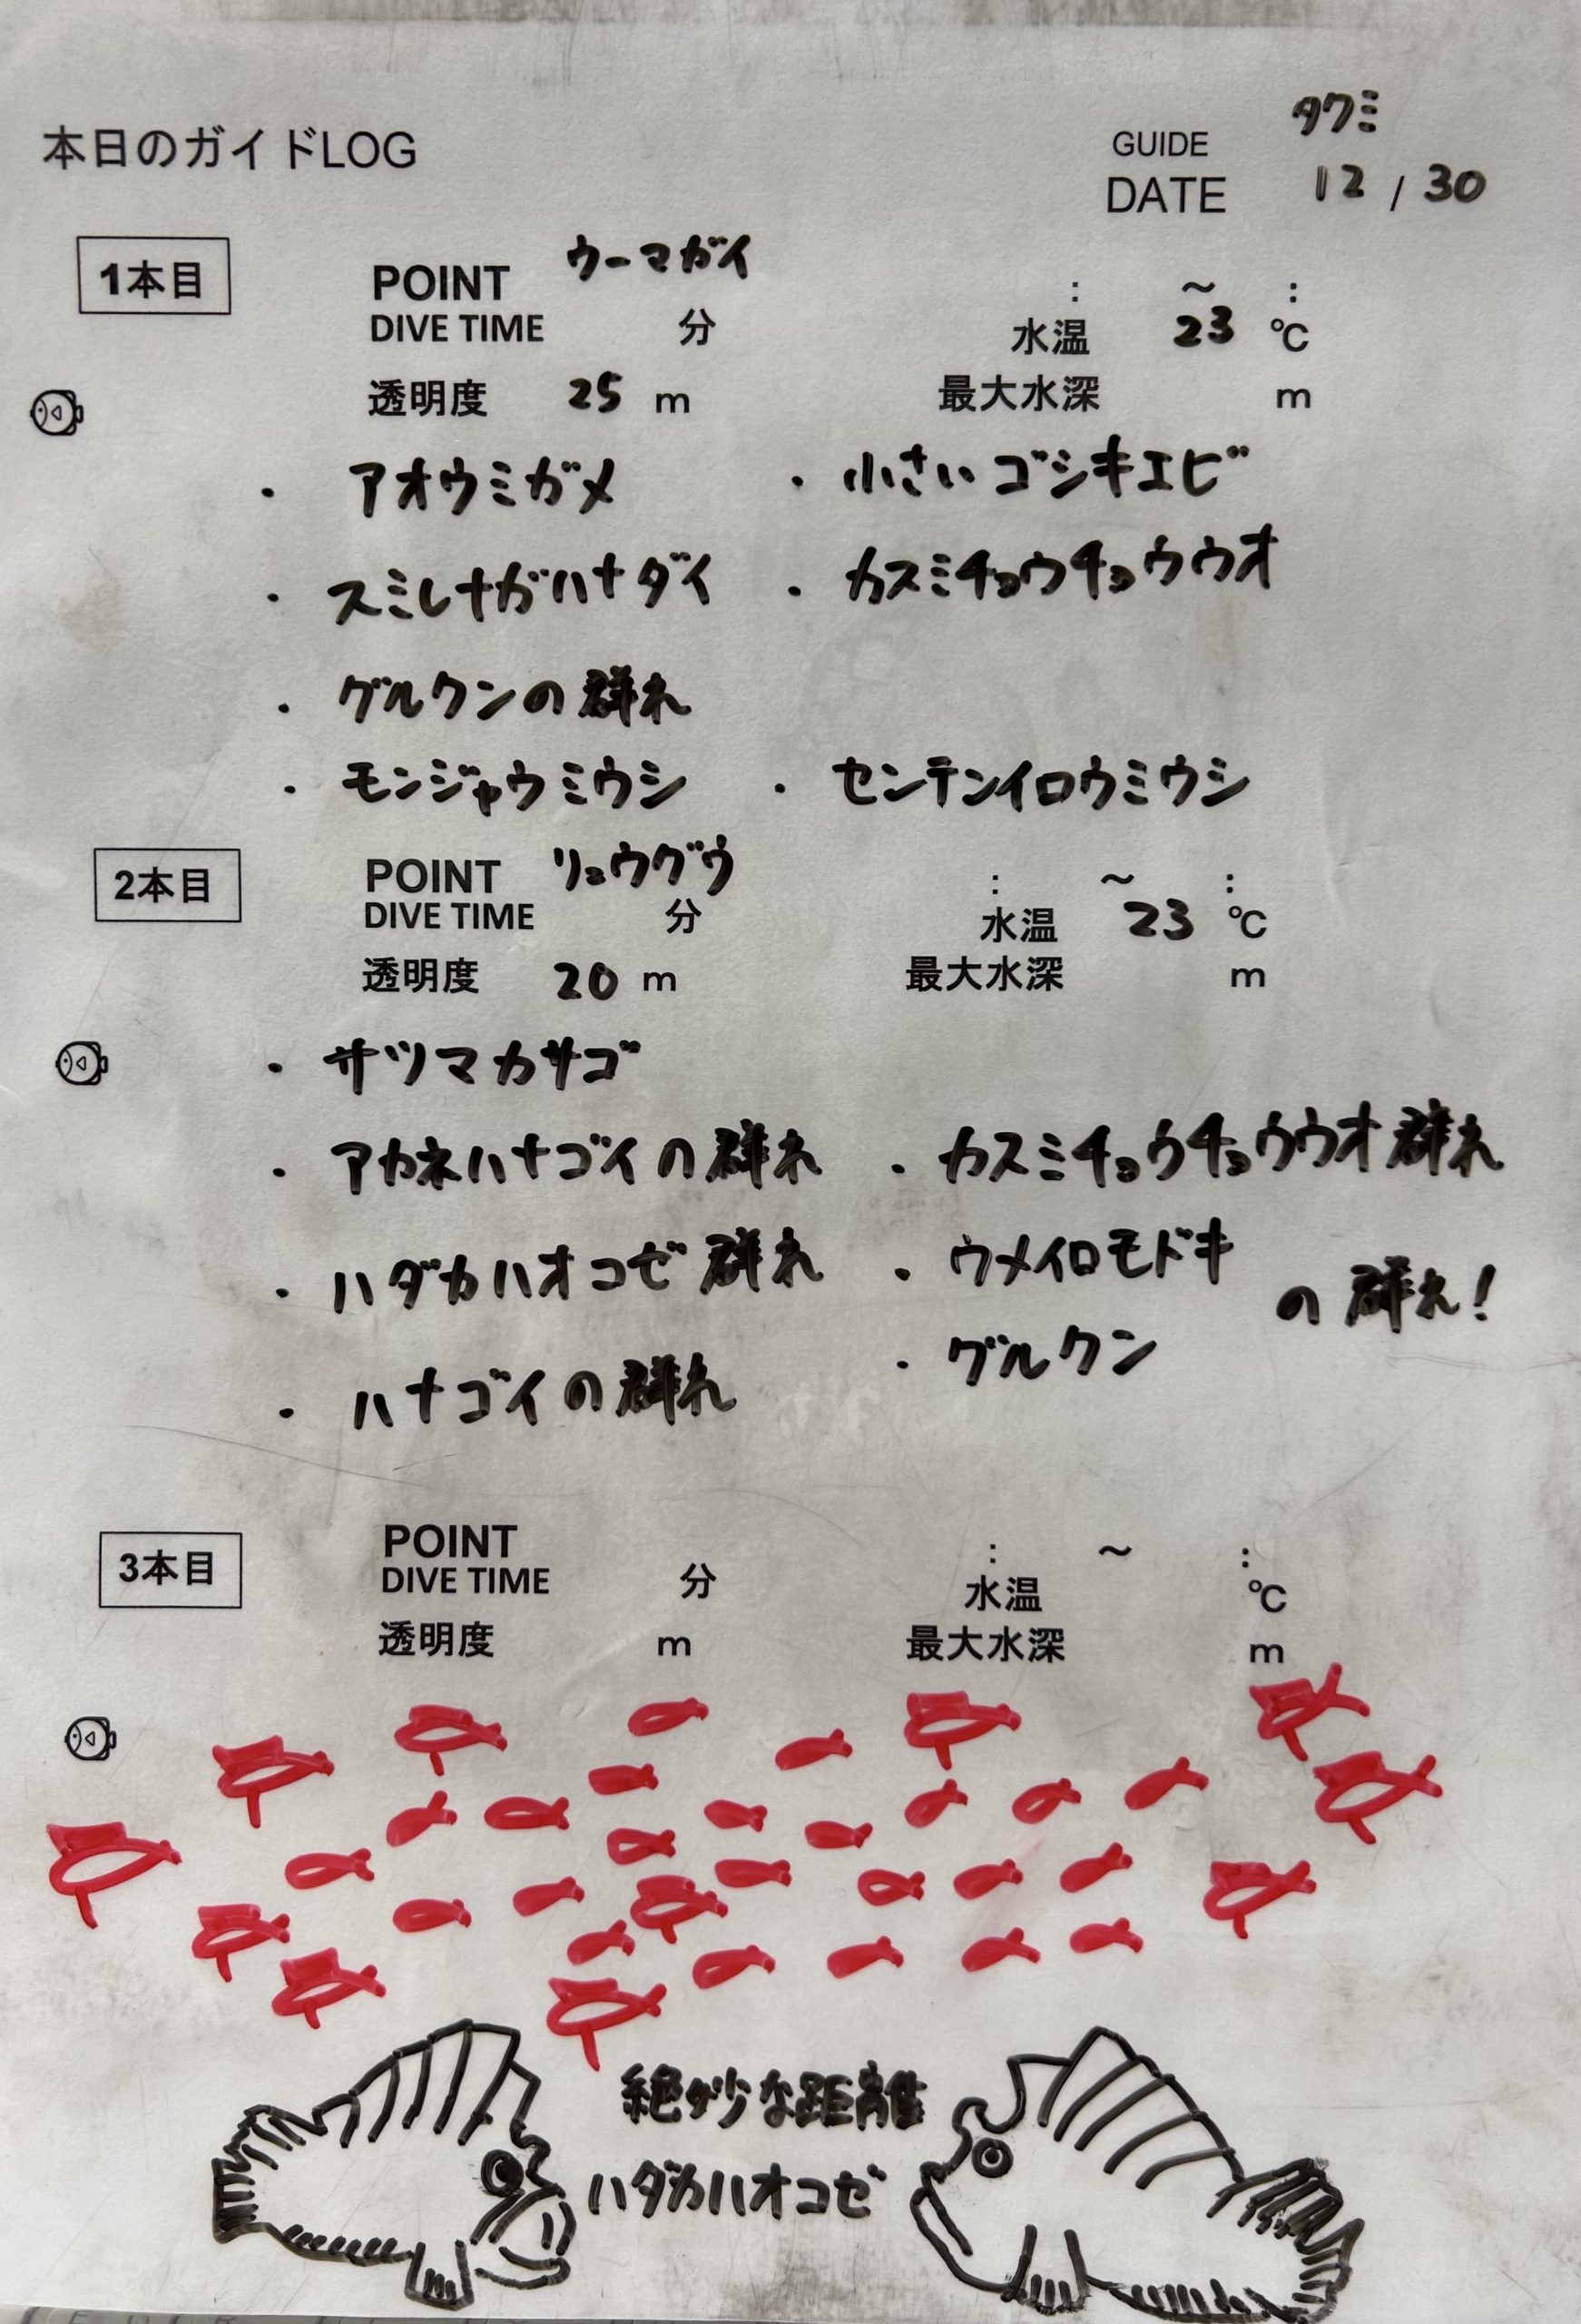 本日のガイドLOG
GUIDE タクミ
DATE 12 / 30
1本目
POINT ウーマガイ : ～ :
DIVE TIME 分 水温 23 ℃
透明度 25 m 最大水深 m
・ アオウミガメ ・ 小さいゴシキエビ
・ スミレナガハナダイ ・ カスミチョウチョウウオ
・ グルクンの群れ
・ モンジャウミウシ ・ センテンイロウミウシ
2本目
POINT リュウグウ : ～ :
DIVE TIME 分 水温 23 ℃
透明度 20 m 最大水深 m
・ サツマカサゴ
・ アカネハナゴイの群れ ・ カスミチョウチョウウオ群れ
・ ハダカハオコゼ 群れ ・ ウメイロモドキ
の群れ!
・ ハナゴイの群れ ・ グルクン
3本目
POINT : ～ :
DIVE TIME 分 水温 ℃
透明度 m 最大水深 m
絶妙な距離
ハダカハオコゼ